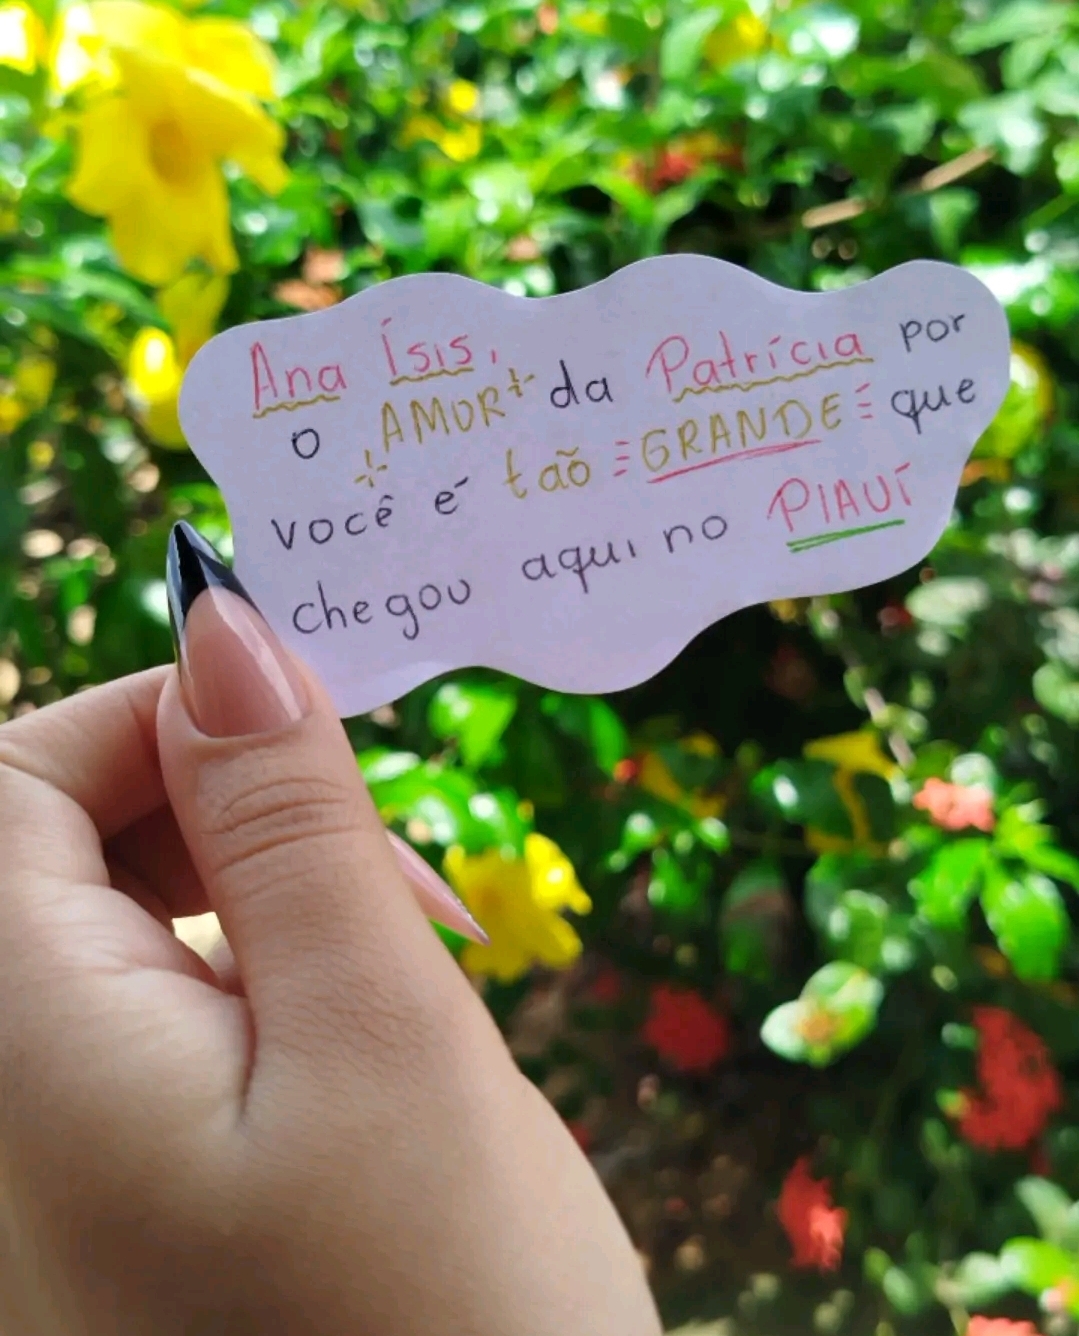 Ana Ísis,
o AMOR da Patrícia por
você é tão GRANDE que
chegou aqui no PIAUÍ